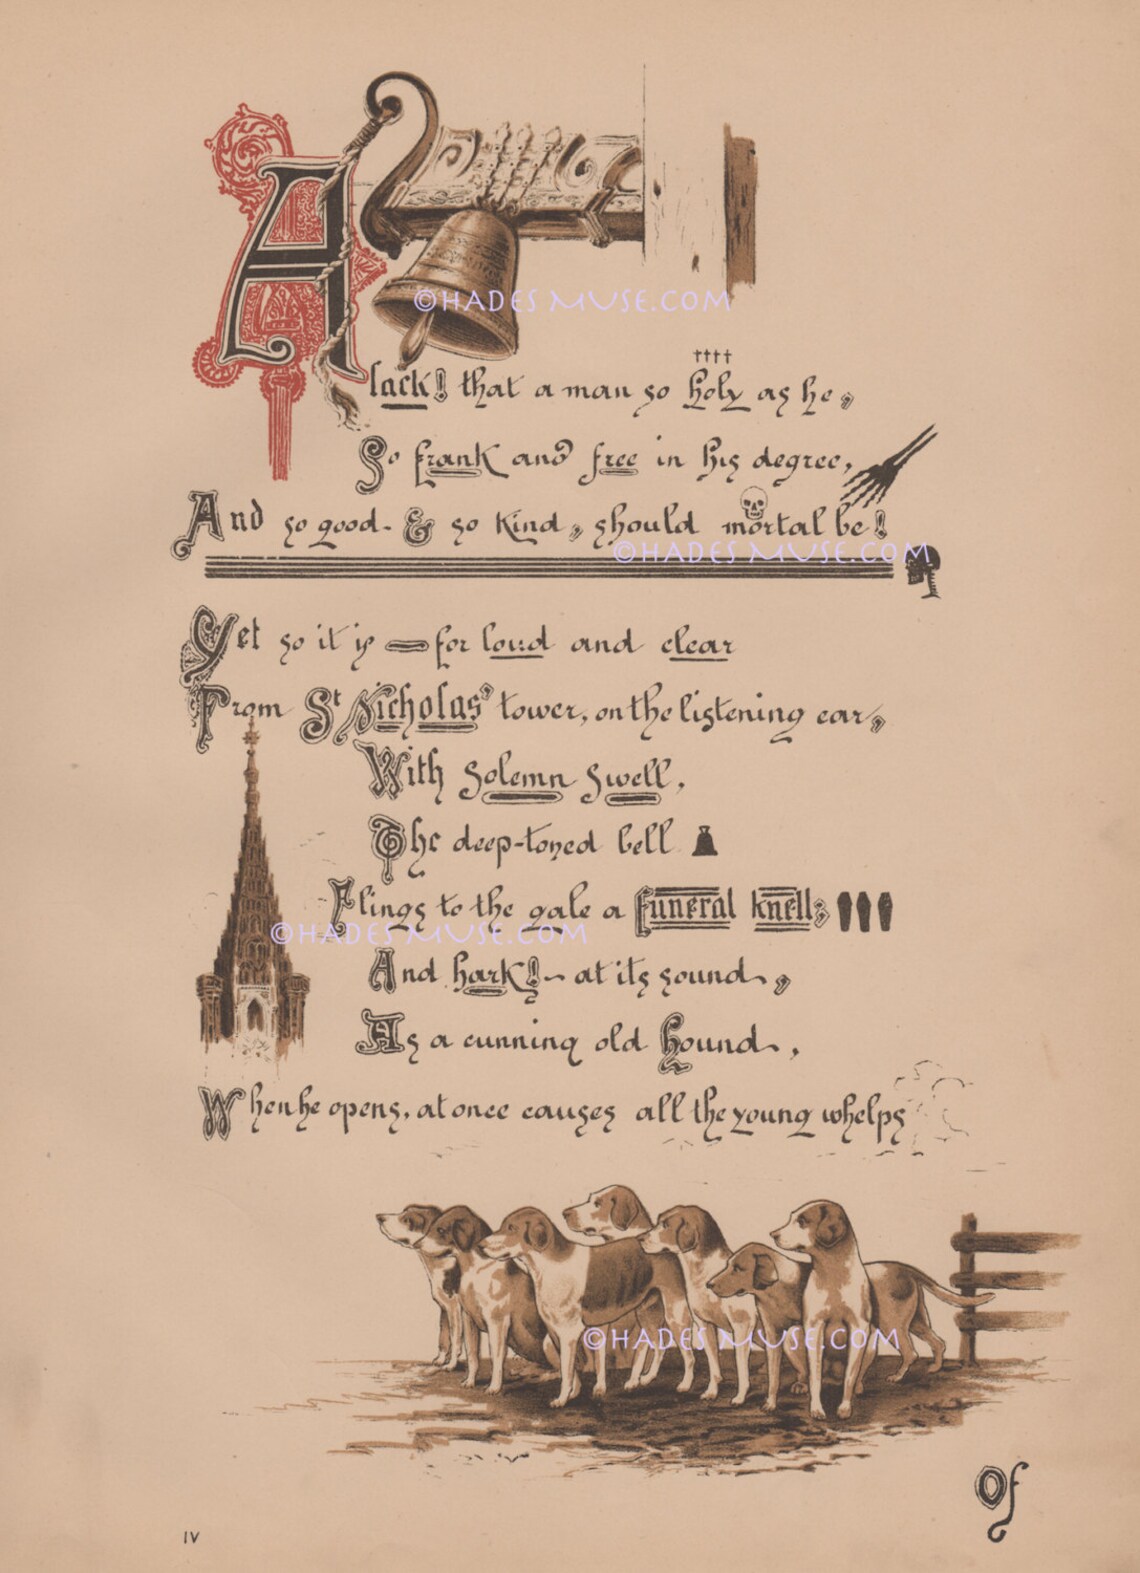 ©HADES MUSE.COM
Alack! that a man so holy as he,
So frank and free in his degree,
And so good & so kind, should mortal be!
©HADES MUSE.COM
Yet so it is — for loud and clear
From St Nicholas' tower, on the listening ear,
With solemn swell,
The deep-toned bell
Flings to the gale a funeral knell;
©HADES MUSE.COM
And hark! – at its sound,
As a cunning old hound,
When he opens, at once causes all the young whelps
©HADES MUSE.COM
Of
IV